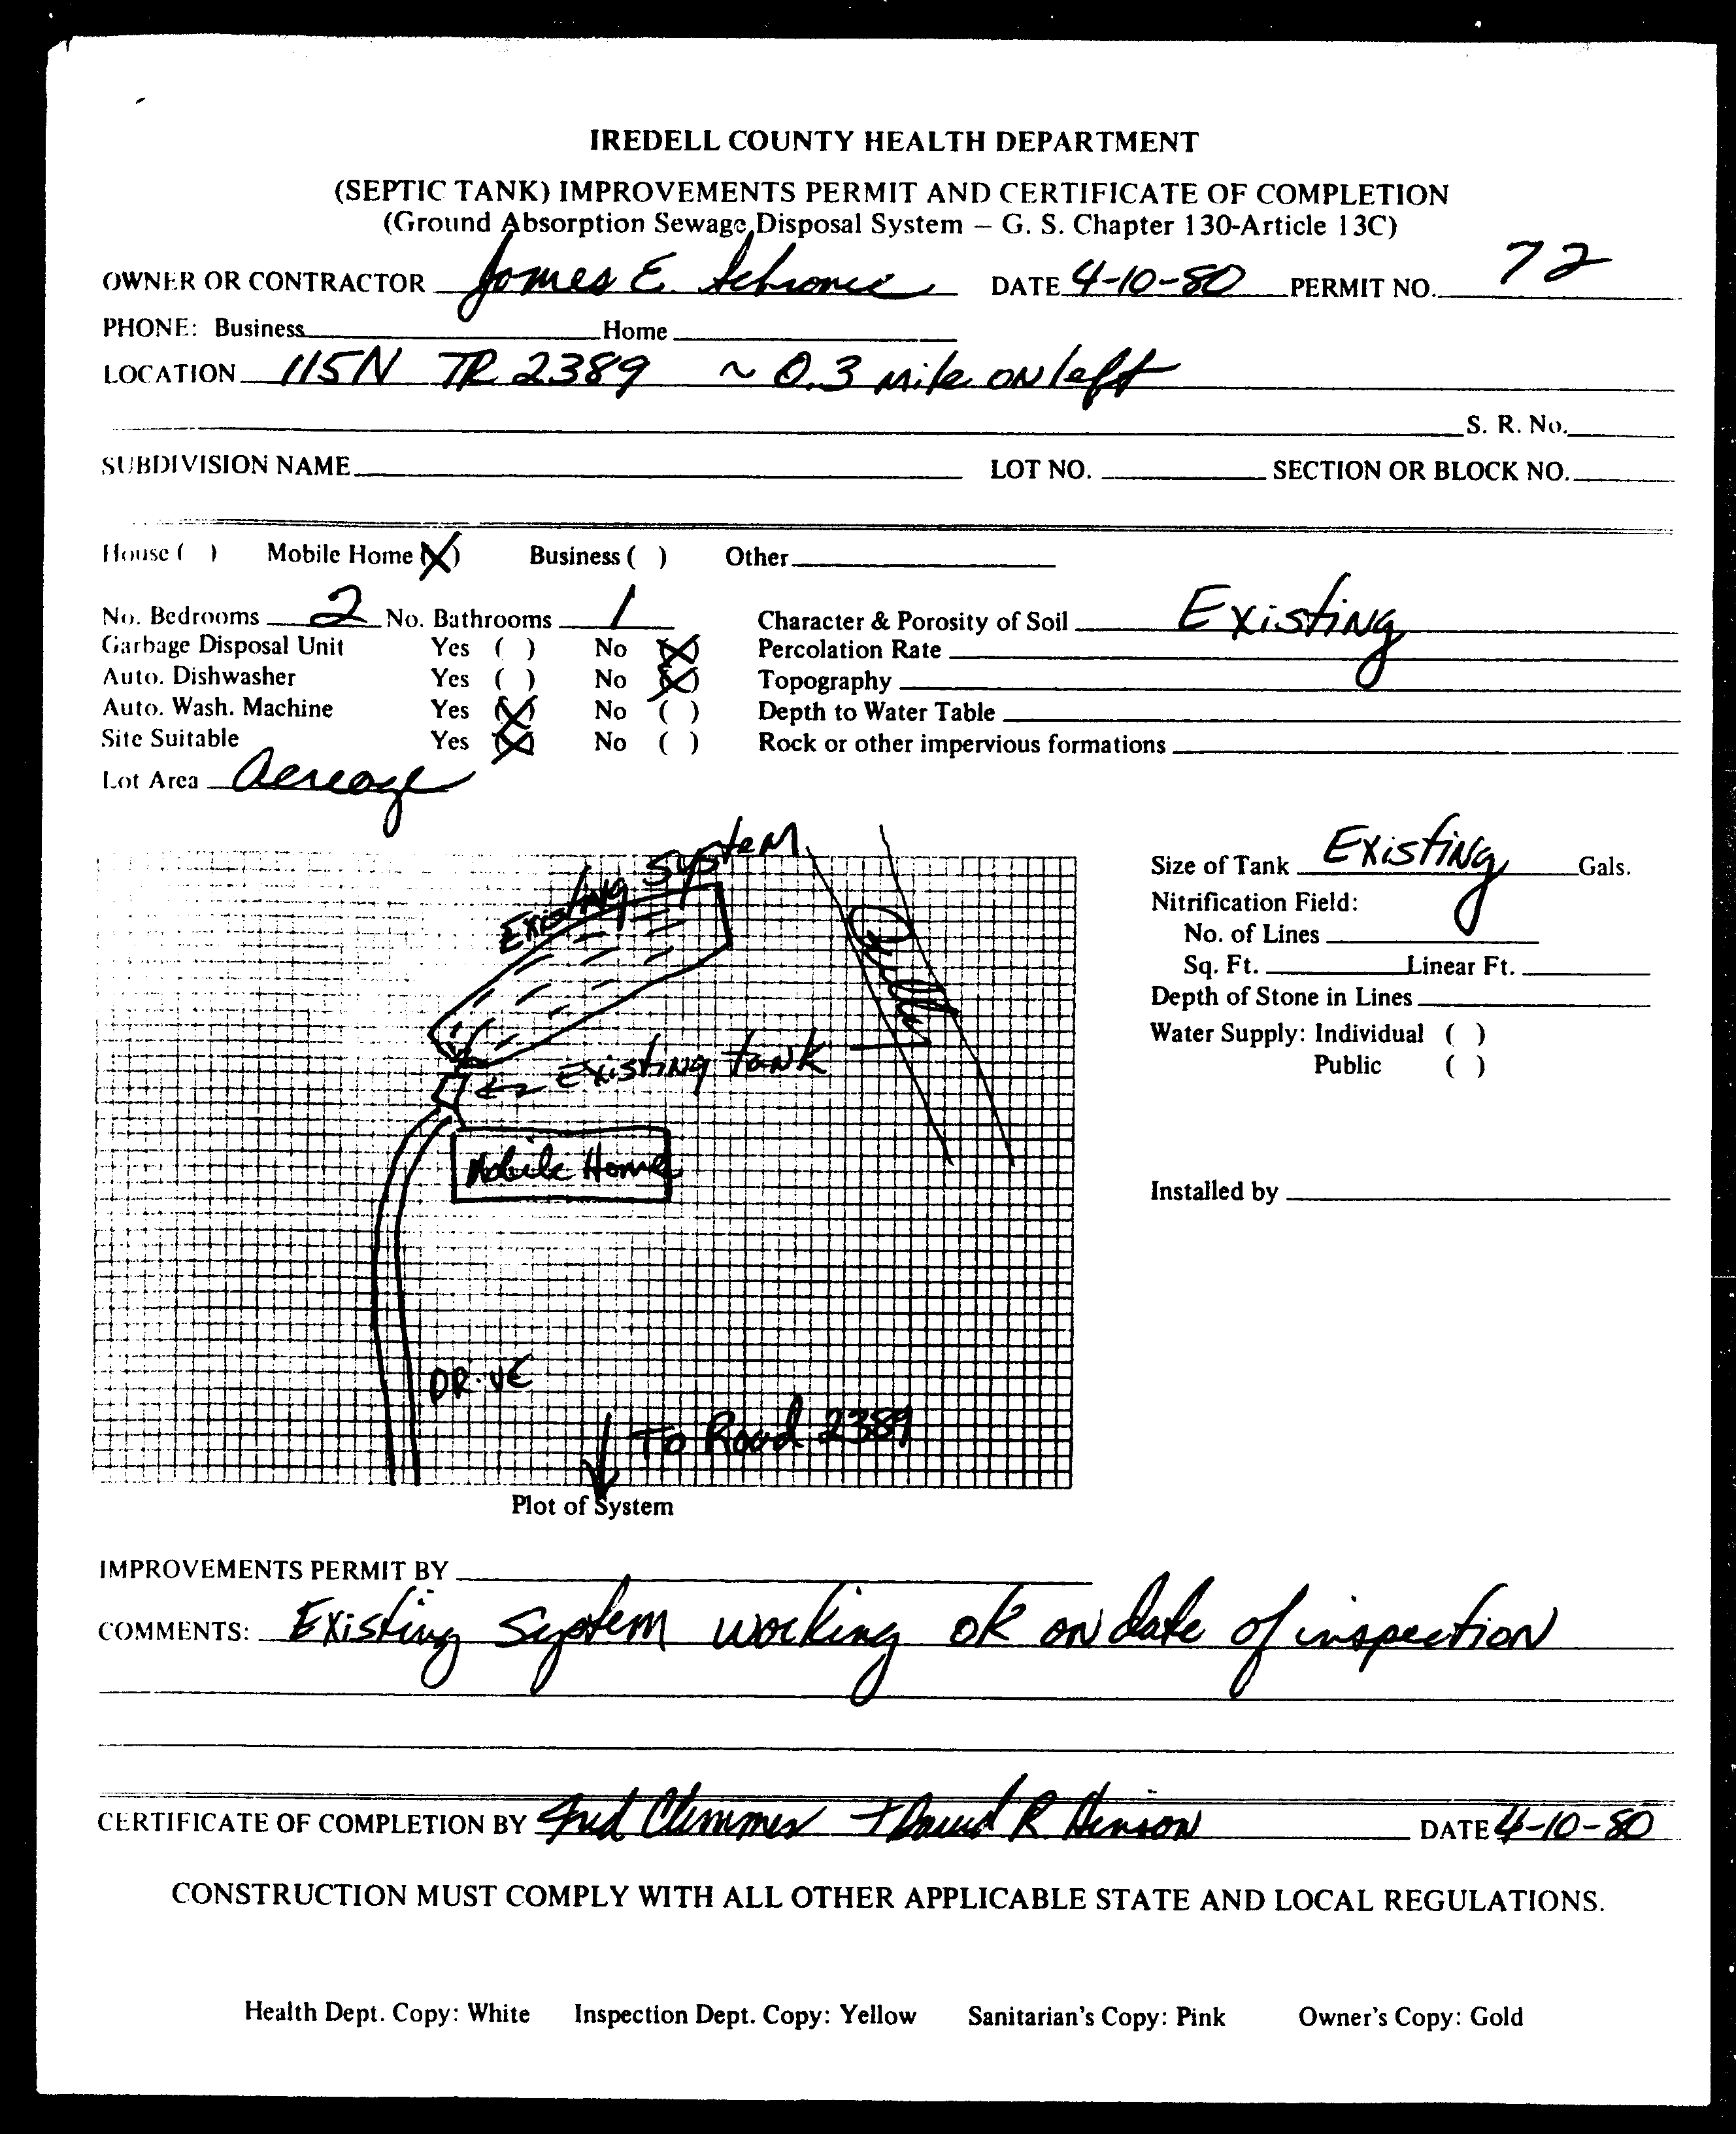 IREDELL COUNTY HEALTH DEPARTMENT
(SEPTIC TANK) IMPROVEMENTS PERMIT AND CERTIFICATE OF COMPLETION
(Ground Absorption Sewage Disposal System – G. S. Chapter 130-Article 13C)
OWNER OR CONTRACTOR James E. DATE 4-10-80 PERMIT NO. 72
PHONE: Business Home
LOCATION 115N TR 2389 ~ 0.3 mile on left
S. R. No.
SUBDIVISION NAME LOT NO. SECTION OR BLOCK NO.
House ( ) Mobile Home (X) Business ( ) Other
No. Bedrooms 2 No. Bathrooms 1 Character & Porosity of Soil Existing
Garbage Disposal Unit Yes ( ) No (X) Percolation Rate
Auto. Dishwasher Yes ( ) No (X) Topography
Auto. Wash. Machine Yes (X) No ( ) Depth to Water Table
Site Suitable Yes (X) No ( ) Rock or other impervious formations
Lot Area Acreage
Existing System
Size of Tank Existing Gals.
Nitrification Field:
No. of Lines
Sq. Ft. Linear Ft.
Depth of Stone in Lines
Water Supply: Individual ( )
Public ( )
Gully
← Existing tank
Mobile Home
Installed by
DRIVE
To Road 2389
Plot of System
IMPROVEMENTS PERMIT BY
COMMENTS: Existing System working ok on date of inspection
CERTIFICATE OF COMPLETION BY Fred Clemmer + David R. Henson DATE 4-10-80
CONSTRUCTION MUST COMPLY WITH ALL OTHER APPLICABLE STATE AND LOCAL REGULATIONS.
Health Dept. Copy: White Inspection Dept. Copy: Yellow Sanitarian's Copy: Pink Owner's Copy: Gold